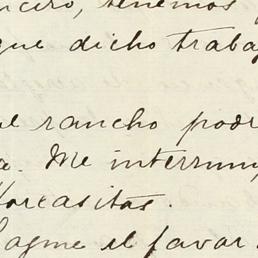 tenemos
que dicho trabaj
rancho podr
a. Me interrum
Horcasitas.
Hagme el favor.